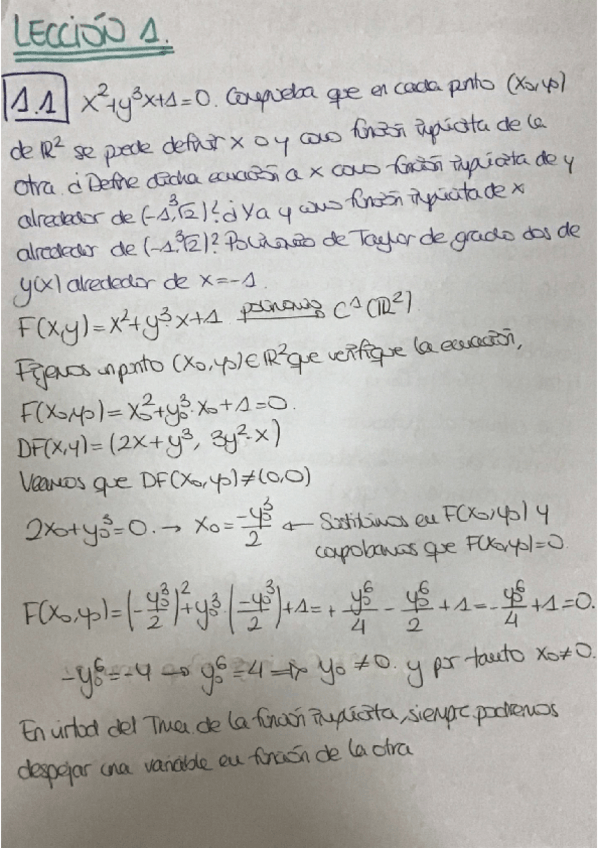 LECCIÓN 1.
1.1 x²+y³x+1=0. Comprueba que en cada punto (x₀,y₀)
de ℝ² se puede definir x o y como función implícita de la
otra. ¿Define dicha ecuación a x como función implícita de y
alrededor de (-1,∛2)? ¿Y a y como función implícita de x
alrededor de (-1,∛2)? Polinomio de Taylor de grado dos de
y(x) alrededor de x=-1.
F(x,y)=x²+y³x+1 polinomio C¹(ℝ²)
Fijemos un punto (x₀,y₀)∈ℝ² que verifique la ecuación,
F(x₀,y₀)=x₀²+y₀³·x₀+1=0.
DF(x,y)=(2x+y³, 3y²·x)
Veamos que DF(x₀,y₀)≠(0,0)
2x₀+y₀³=0. → x₀=-y₀³/2 ← Sustituimos en F(x₀,y₀) y
comprobamos que F(x₀,y₀)=0.
F(x₀,y₀)=(-y₀³/2)²+y₀³·(-y₀³/2)+1=+y₀⁶/4-y₀⁶/2+1=-y₀⁶/4+1=0.
-y₀⁶=-4 → y₀⁶=4 ⇒ y₀≠0. y por tanto x₀≠0.
En virtud del Tma de la función implícita, siempre podremos
despejar una variable en función de la otra